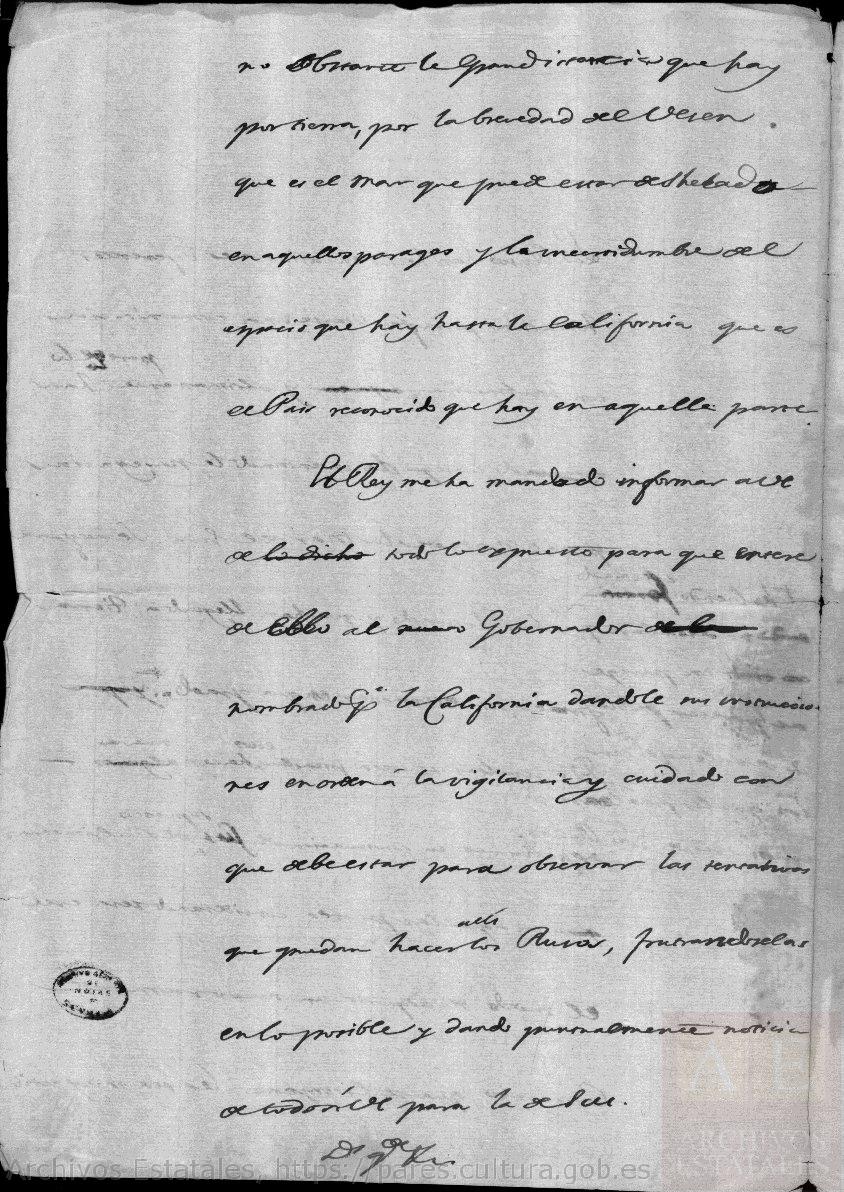 no obstante la gran distancia que hay
por tierra, por la brevedad del
que es el mar que puede estar deshelado
en aquellos parages y la incertidumbre del
espacio que hay hasta la California que es
el Pais reconocido que hay en aquella parte.
El Rey me ha mandado informar a VE
de lo dicho todo lo expuesto para que entere
de Ello al nuevo Gobernador de la
nombrado pa la California dandole sus instruccio-
nes en orden á la vigilancia y cuidado con
que debe estar para observar las tentativas
alli
que puedan hacer los Rusos, frustrandoselas
en lo posible y dando puntualmente noticia
de todo á VE para la de S.M.
Ds gde
ARCHIVO GENERAL
DE
INDIAS
SEVILLA
AE
ARCHIVOS
ESTATALES
Archivos Estatales, https://pares.cultura.gob.es